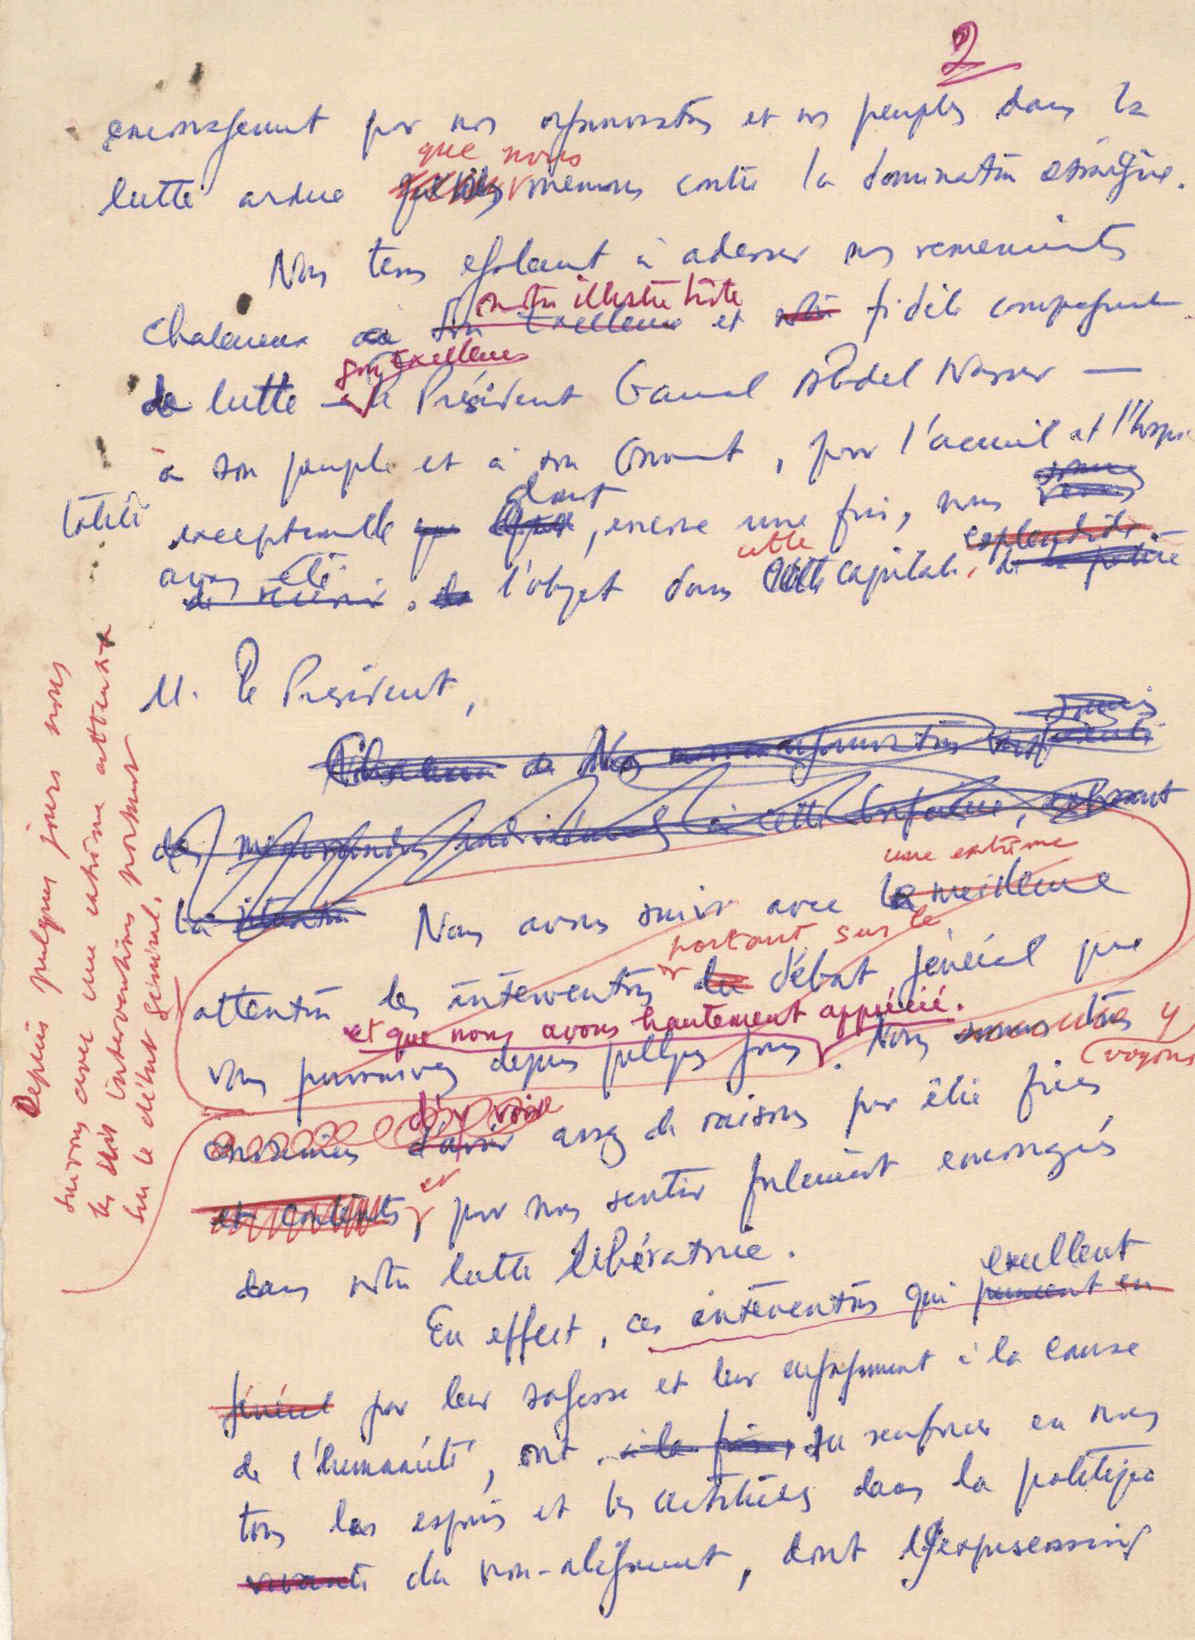 2
encouragement pour nos organisations et nos peuples dans la
que nous
lutte ardue menons contre la domination étrangère.
Nous tenons également à adresser nos remerciements
notre illustre hôte
chaleureux à Son Excellence et notre fidèle compagnon
Son Excellence
de lutte — le Président Gamal Abdel Nasser —
à son peuple et à son Gouvt, pour l'accueil et l'hospi
talité exceptionnelle dont, encore une fois, nous sommes venus
cette
avons été l'objet dans cette capitale, splendide
de recevoir
M. le Président,
de Nos organisations
des mémorandums individuels à cette Conférence,
la
une extrême
Nous avons suivi avec la meilleure
portant sur le
attention les interventions du débat général que
et que nous avons hautement apprécié.
vous poursuivez depuis quelques jours. Nous sommes très
y
voyons
d'y voir
d'avoir assez de raisons pour être fiers
et contents, et pour nous sentir fortement encouragés
dans notre lutte libératrice.
excellent
En effect, ces interventions qui en
général par leur sagesse et leur engagement à la cause
de l'humanité, ont à la fois, su renforcer en nous
tous les espoirs et les certitudes dans la politique
vivante du non-alignement, dont
Depuis quelques jours nous
suivons avec une extrême attention
les interventions portant
sur le débat général.